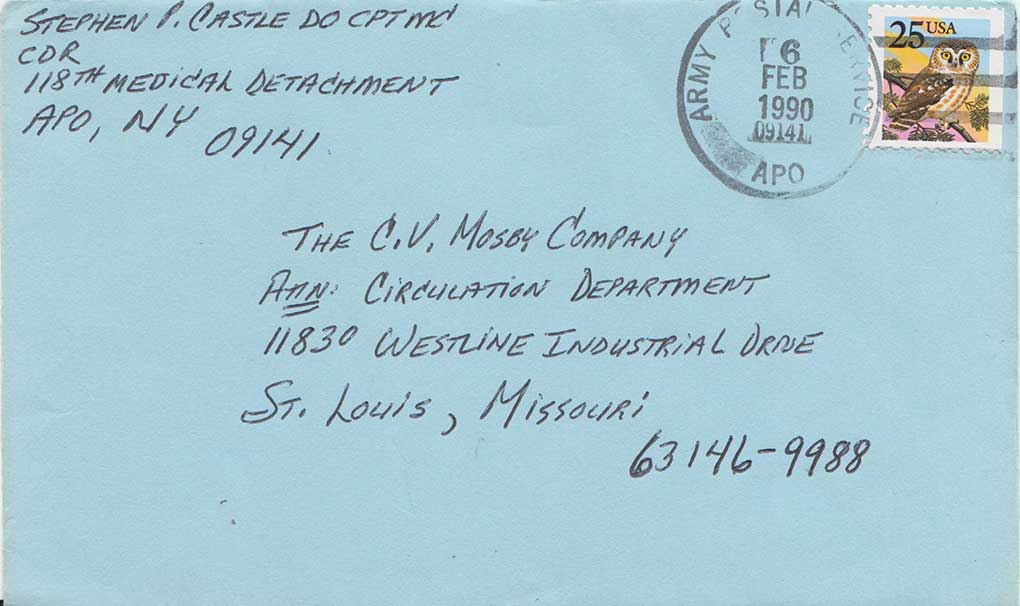 STEPHEN P. CASTLE DO CPT MC
CDR
118TH MEDICAL DETACHMENT
APO, NY
09141
ARMY POSTAL SERVICE
6
FEB
1990
09141
APO
25 USA
THE C.V. MOSBY COMPANY
ATTN: CIRCULATION DEPARTMENT
11830 WESTLINE INDUSTRIAL DRIVE
ST. LOUIS, MISSOURI
63146-9988